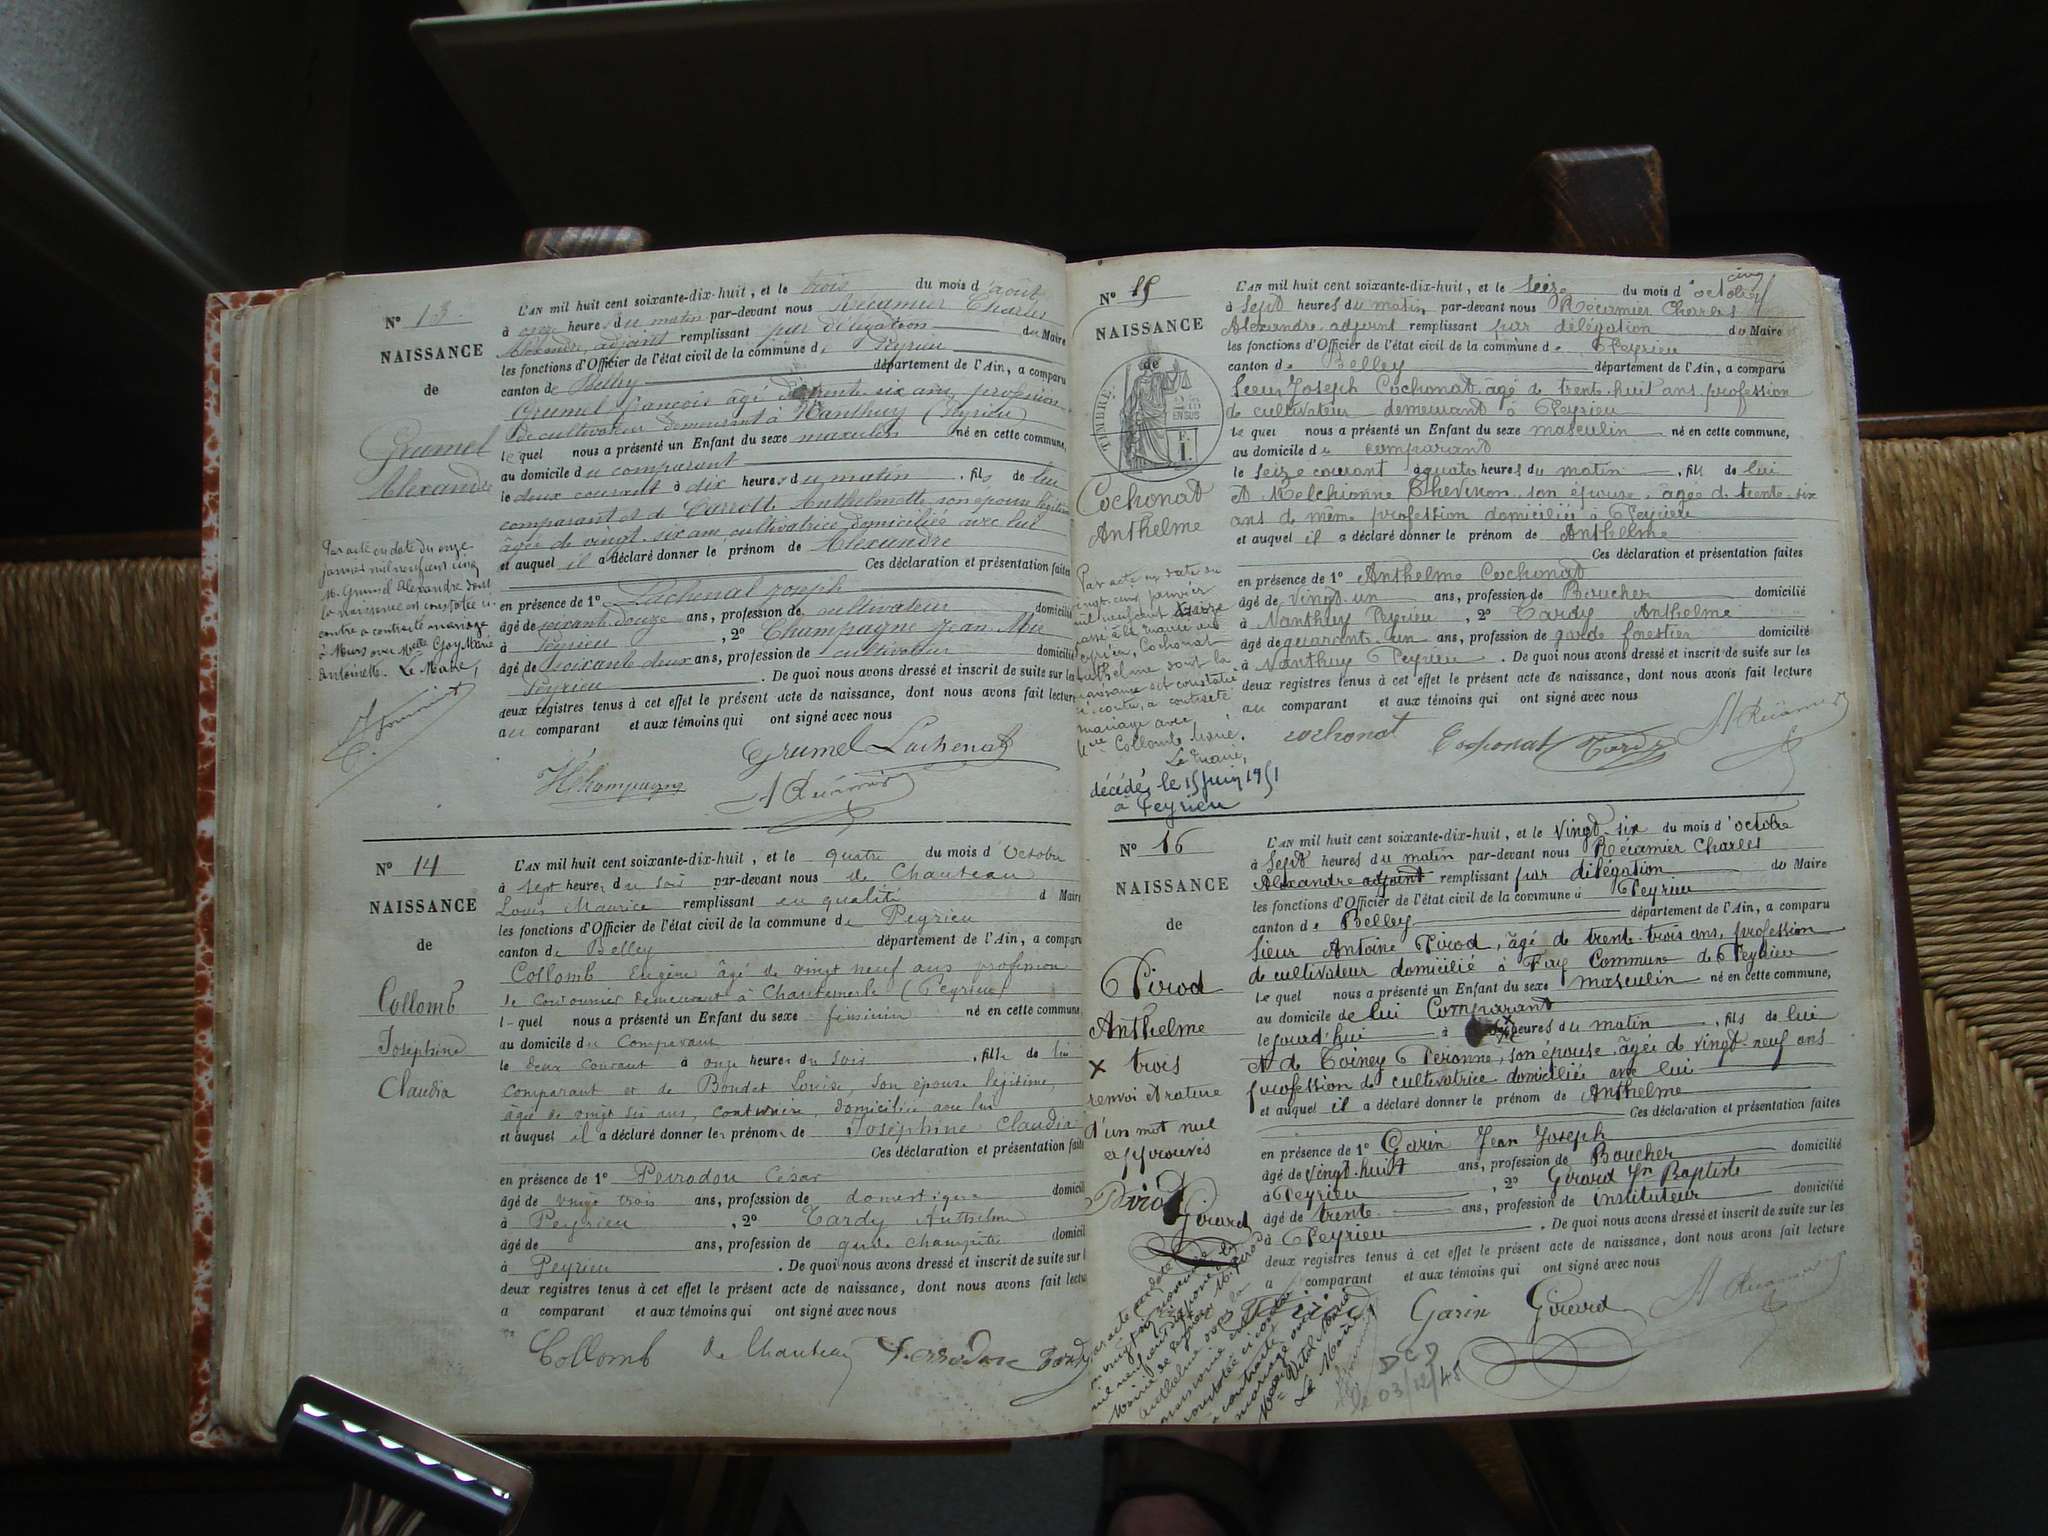 N° 13
NAISSANCE
de
Grumel
Alexandre
L'AN mil huit cent soixante-dix-huit, et le trois du mois d'août
à onze heures du matin par-devant nous Récamier Charles
Alexandre, adjoint remplissant par délégation du Maire
les fonctions d'Officier de l'état civil de la commune de Peyrieu
canton de Belley département de l'Ain, a comparu
Grumel françois âgé de trente-six ans, profession
de cultivateur demeurant à Nanthuy (Peyrieu)
lequel nous a présenté un Enfant du sexe masculin né en cette commune,
au domicile du comparant
le deux courant à dix heures du matin, fils de lui
comparant et de Anthelmette son épouse légitime
âgée de vingt-six ans, cultivatrice, domiciliée avec lui
et auquel il a déclaré donner le prénom de Alexandre
Ces déclaration et présentation faites
en présence de 1° Lachenal Joseph
âgé de soixante-douze ans, profession de cultivateur domicilié
à Peyrieu, 2° Champagne Jean Mie
âgé de soixante-deux ans, profession de cultivateur domicilié
Peyrieu. De quoi nous avons dressé et inscrit de suite sur les
deux registres tenus à cet effet le présent acte de naissance, dont nous avons fait lecture
au comparant et aux témoins qui ont signé avec nous
Grumel Lachenal
Champagne A Récamier
Par acte en date du onze
janvier mil neuf cent cinq
M. Grumel Alexandre dont
la naissance est constatée ci
contre a contracté mariage
à Murs avec Melle Goy Marie
Antoinette. Le Maire,
N° 14
NAISSANCE
de
Collomb
Joséphine
Claudia
L'AN mil huit cent soixante-dix-huit, et le quatre du mois d'Octobre
à sept heures du soir par-devant nous de Chauteau
Louis Maurice remplissant en qualité d Maire
les fonctions d'Officier de l'état civil de la commune de Peyrieu
canton de Belley département de l'Ain, a comparu
Collomb Eugène âgé de vingt neuf ans profession
de demeurant à Chantemerle (Peyrieu)
lequel nous a présenté un Enfant du sexe feminin né en cette commune
au domicile du Comparant
le deux courant à onze heures du soir, fille de lui
comparant et de Boudet Louise, son épouse légitime,
âgée de vingt six ans, couturière, domiciliée avec lui
et auquel il a déclaré donner les prénoms de Joséphine Claudia
Ces déclaration et présentation faites
en présence de 1° Perrodon César
âgé de vingt trois ans, profession de domestique domicilié
à Peyrieu, 2° Tardy Anthelme
âgé de ans, profession de garde champêtre domicilié
à Peyrieu. De quoi nous avons dressé et inscrit de suite sur les
deux registres tenus à cet effet le présent acte de naissance, dont nous avons fait lecture
a comparant et aux témoins qui ont signé avec nous
Collomb de Chauteau Perrodon Tardy
cinq
N° 15
NAISSANCE
de
TIMBRE
EN SUS
F.
1.
Cochonat
Anthelme
L'AN mil huit cent soixante-dix-huit, et le seize du mois d'octobre
à Sept heures du matin par-devant nous Récamier Charles
Alexandre adjoint remplissant par délégation du Maire
les fonctions d'Officier de l'état civil de la commune de Peyrieu
canton de Belley département de l'Ain, a comparu
Sieur Joseph Cochonat âgé de trente-huit ans, profession
de cultivateur demeurant à Peyrieu
lequel nous a présenté un Enfant du sexe masculin né en cette commune,
au domicile du comparant
le seize courant à quatre heures du matin, fils de lui
et Melchionne Thevenon, son épouse, âgée de trente-six
ans de même profession domiciliée à Peyrieu
et auquel il a déclaré donner le prénom de Anthelme
Ces déclaration et présentation faites
en présence de 1° Anthelme Cochonat
âgé de vingt-un ans, profession de Boucher domicilié
à Nanthuy Peyrieu, 2° Tardy Anthelme
âgé de quarante-un ans, profession de garde forestier domicilié
à Nanthuy Peyrieu. De quoi nous avons dressé et inscrit de suite sur les
deux registres tenus à cet effet le présent acte de naissance, dont nous avons fait lecture
au comparant et aux témoins qui ont signé avec nous
cochonat Cochonat Tardy A Récamier
Par acte en date du
vingt-cinq janvier
mil neuf cent
passé à la mairie de
Peyrieu, Cochonat
Anthelme dont la
naissance est constatée
ci-contre, a contracté
mariage avec
Melle Collomb Marie.
Le Maire,
décédé le 15 juin 1951
à Peyrieu
N° 16
NAISSANCE
de
Pirod
Anthelme
x trois
renvoi et rature
d'un mot nul
approuvés
Pirod
Girard
L'AN mil huit cent soixante-dix-huit, et le vingt-six du mois d'octobre
à Sept heures du matin par-devant nous Récamier Charles
Alexandre adjoint remplissant par délégation du Maire
les fonctions d'Officier de l'état civil de la commune d Peyrieu
canton de Belley département de l'Ain, a comparu
Sieur Antoine Pirod, âgé de trente-trois ans, profession
de cultivateur domicilié à Fay Commune de Peyrieu
lequel nous a présenté un Enfant du sexe masculin né en cette commune,
au domicile de lui Comparant
le jourd'hui à x heures du matin, fils de lui
et de Toiney Péronne, son épouse, âgée de vingt-neuf ans
profession de cultivatrice domiciliée avec lui
et auquel il a déclaré donner le prénom de Anthelme
Ces déclaration et présentation faites
en présence de 1° Garin Jean Joseph
âgé de vingt-huit ans, profession de Boucher domicilié
à Peyrieu, 2° Girard Jn Baptiste
âgé de trente ans, profession de instituteur domicilié
à Peyrieu. De quoi nous avons dressé et inscrit de suite sur les
deux registres tenus à cet effet le présent acte de naissance, dont nous avons fait lecture
a comparant et aux témoins qui ont signé avec nous
Pirod Garin Girard A Récamier
DCD
le 03/12/45